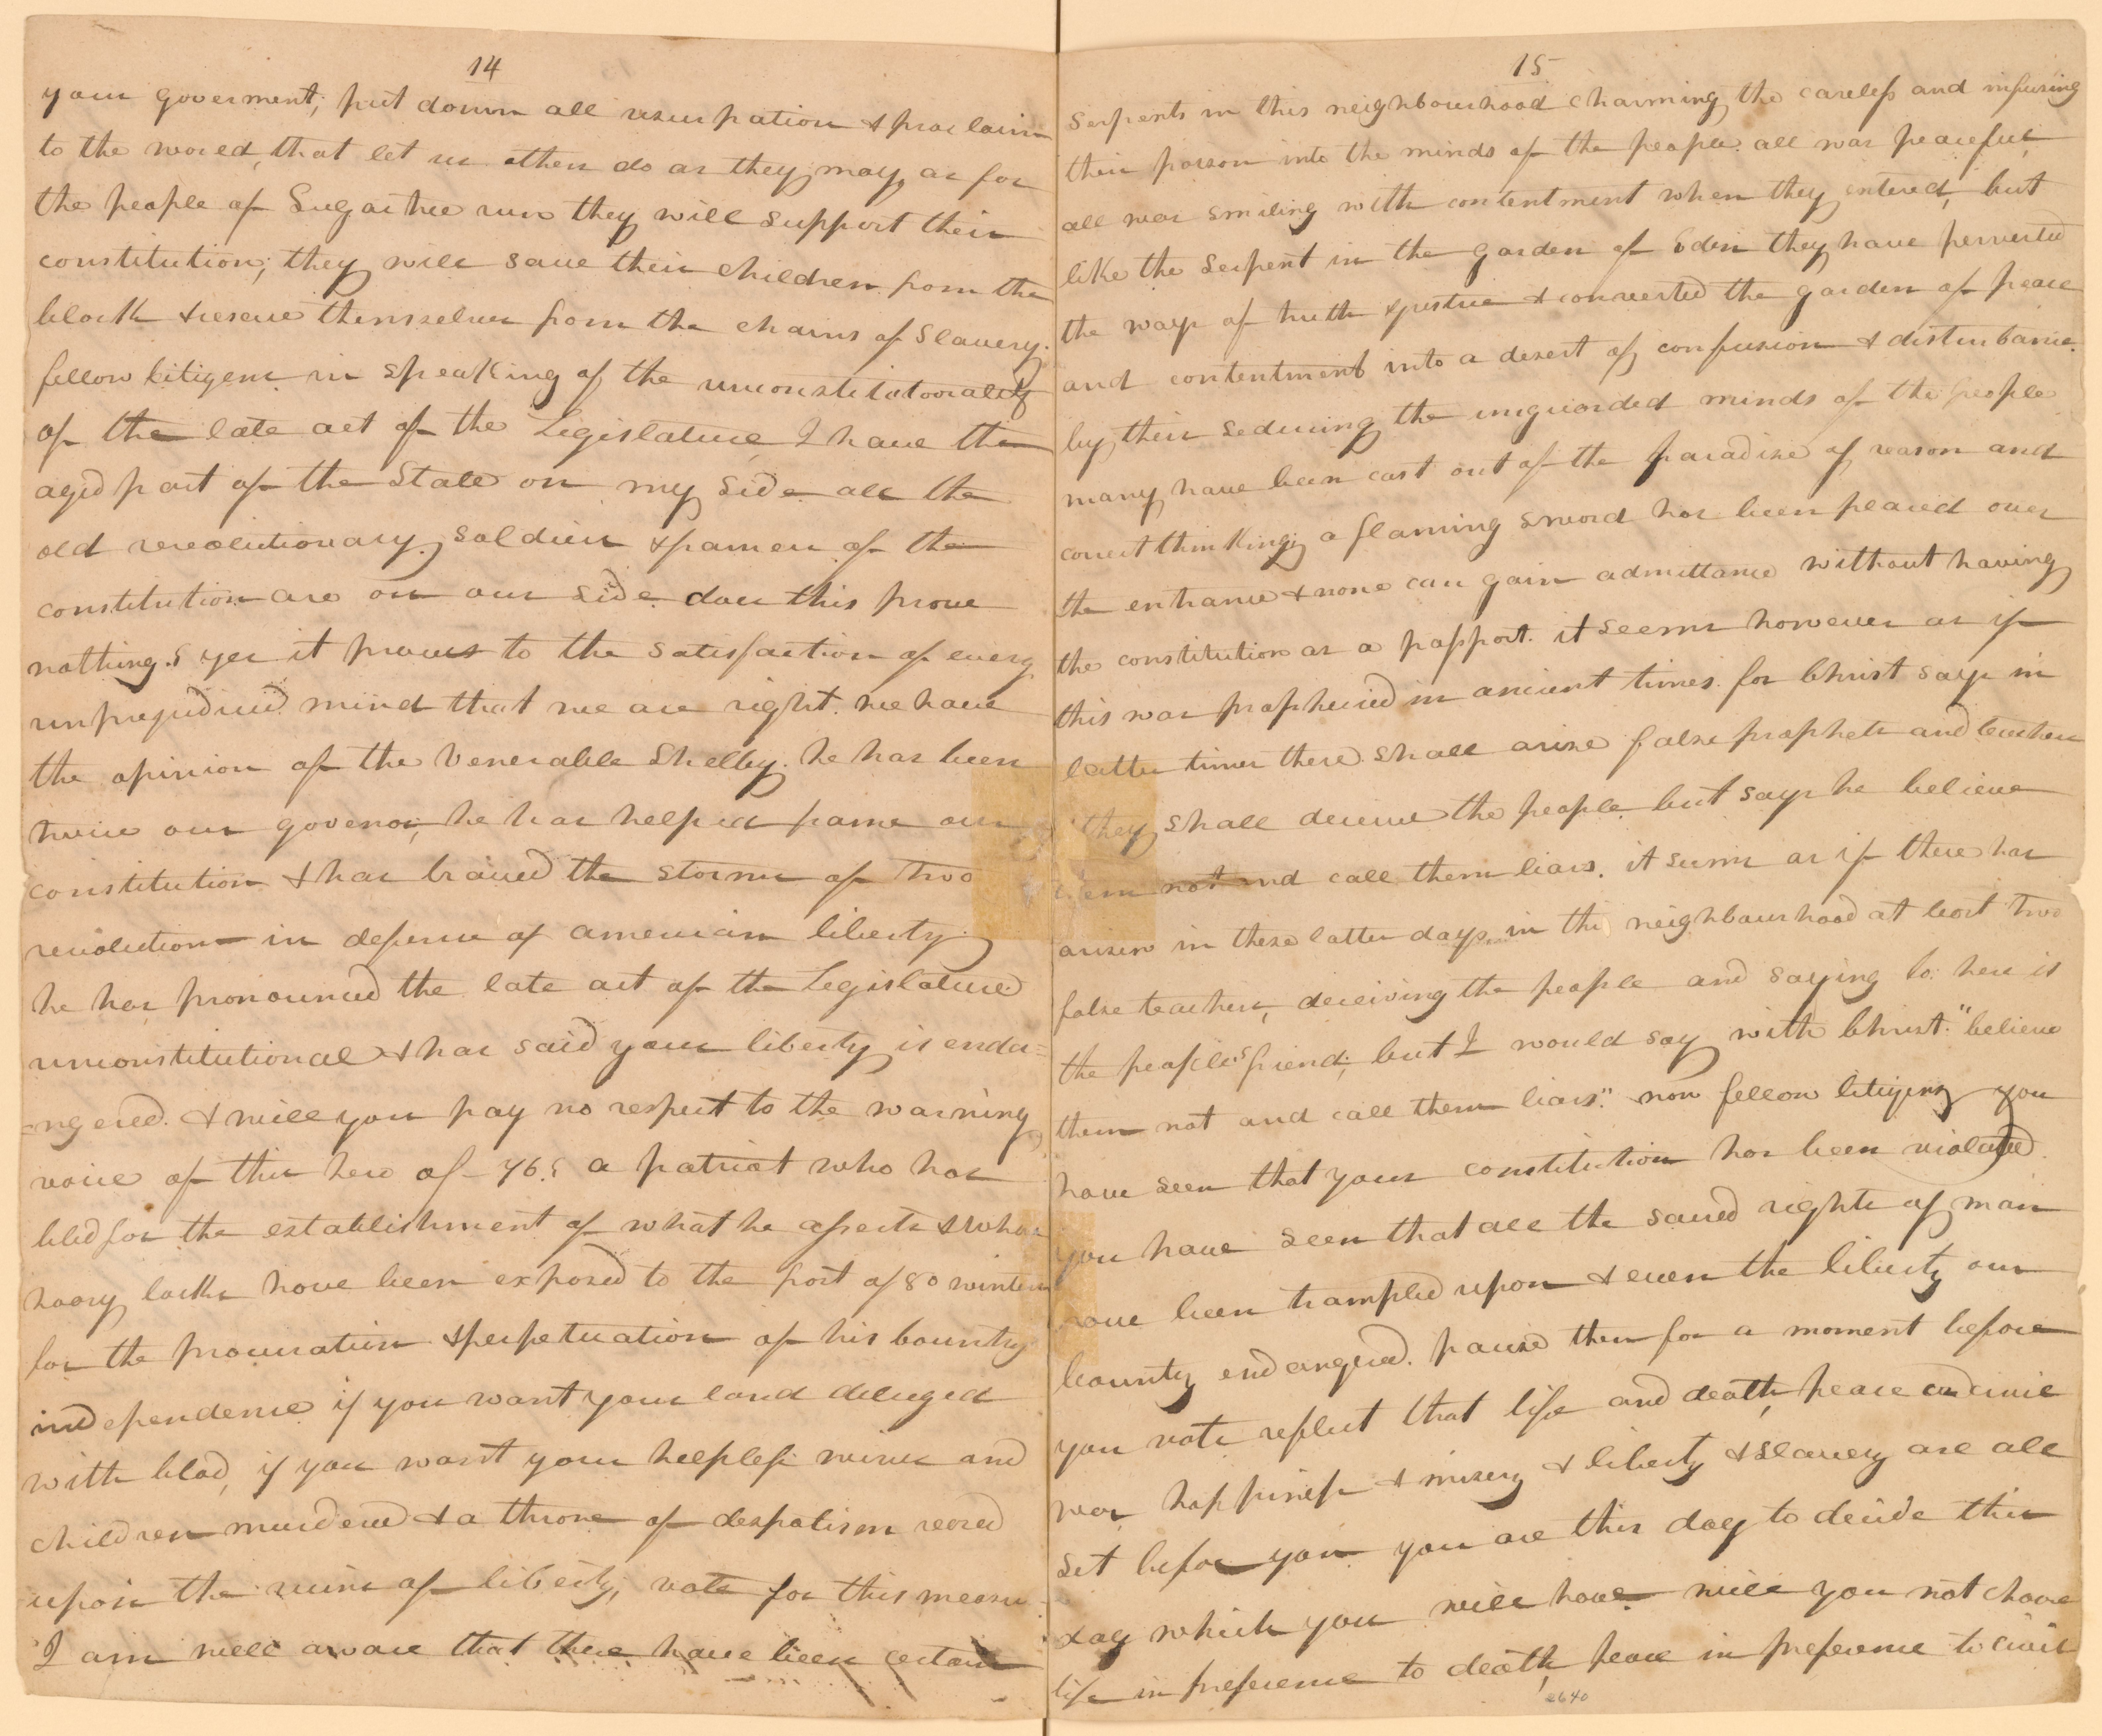 14
your goverment; put down all usurpation & proclaim
to the world, that let us others do as they may, as for
the people of Sugartree run they will support their
constitution; they will save their children from the
block & rescue themselves from the chains of Slavery.
fellow Citizens in speaking of the unconstitutionality
of the late act of the Legislature I have the
aged part of the State on my side all the
old revolutionary soldiers & framers of the
constitution are on our side does this prove
nothing? yes it proves to the satisfaction of every
unprejudiced mind that we are right. we have
the opinion of the Venerable Shelby. he has been
twice our govenor, he has helped frame our
constitution & has braved the storms of two
revolution in defence of american liberty.
he has pronounced the late act of the Legislature
unconstitutional & has said your liberty is enda=
=ngered. & will you pay no respect to the warning
voice of this hero of 76.? a patriot who has
bled for the establishment of what he asserts & whose
hoory locks have been exposed to the frost of 80 winters
for the procuration & perpetuation of his country
independence if you want your land deluged
with blod, if you want your helpless wives and
children murdered & a throne of despotism reared
upon the ruins of liberty, vote for this measure
I am well aware that there have been certain
15
serpents in this neighbourhood charming the careless and infusing
their poison into the minds of the people. all was peaceful,
all was smiling with contentment when they entered, but
like the Serpent in the garden of Eden they have perverted
the ways of truth & justice & converted the garden of peace
and contentment into a desert of confusion & disturbance.
by their seducing the unguarded minds of the people
many have been cast out of the paradise of reason and
correct thinking; a flaming sword has been placed over
the entrance & none can gain admittance without having
the constitution as a passport. it seems however as if
this was prophecied in ancient times. for Christ says in
latter times there shall arise false prophets and teachers
they shall deceive the people. but says he believe
them not and call them liars. it seems as if there has
arisen in these latter days in this neighbourhood at least two
false teachers, deceiving the people and saying lo: here is
the people's friend; but I would say with Christ. "believe
them not and call them liars." now fellow Citizens you
have seen that your constitution has been violated.
you have seen that all the sacred rights of man
have been trampled upon & even the liberty our
country endangered. pause then for a moment before
you vote reflect that life and death, peace and civic
war happiness & misery & liberty & slavery are all
set before you you are this day to decide this
day which you will have. will you not chose
life in preference to death, peace in preference to civil
2640